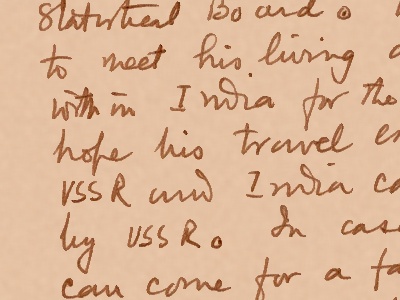 Statistical Board.
to meet his living
within India for the
hope his travel
USSR and India
by USSR. In case
can come for a